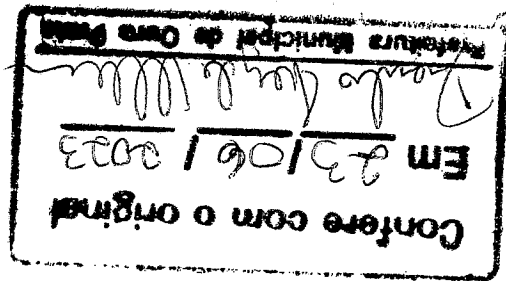 Confere com o original
Em 23/06/2023
Prefeitura Municipal de Ouro